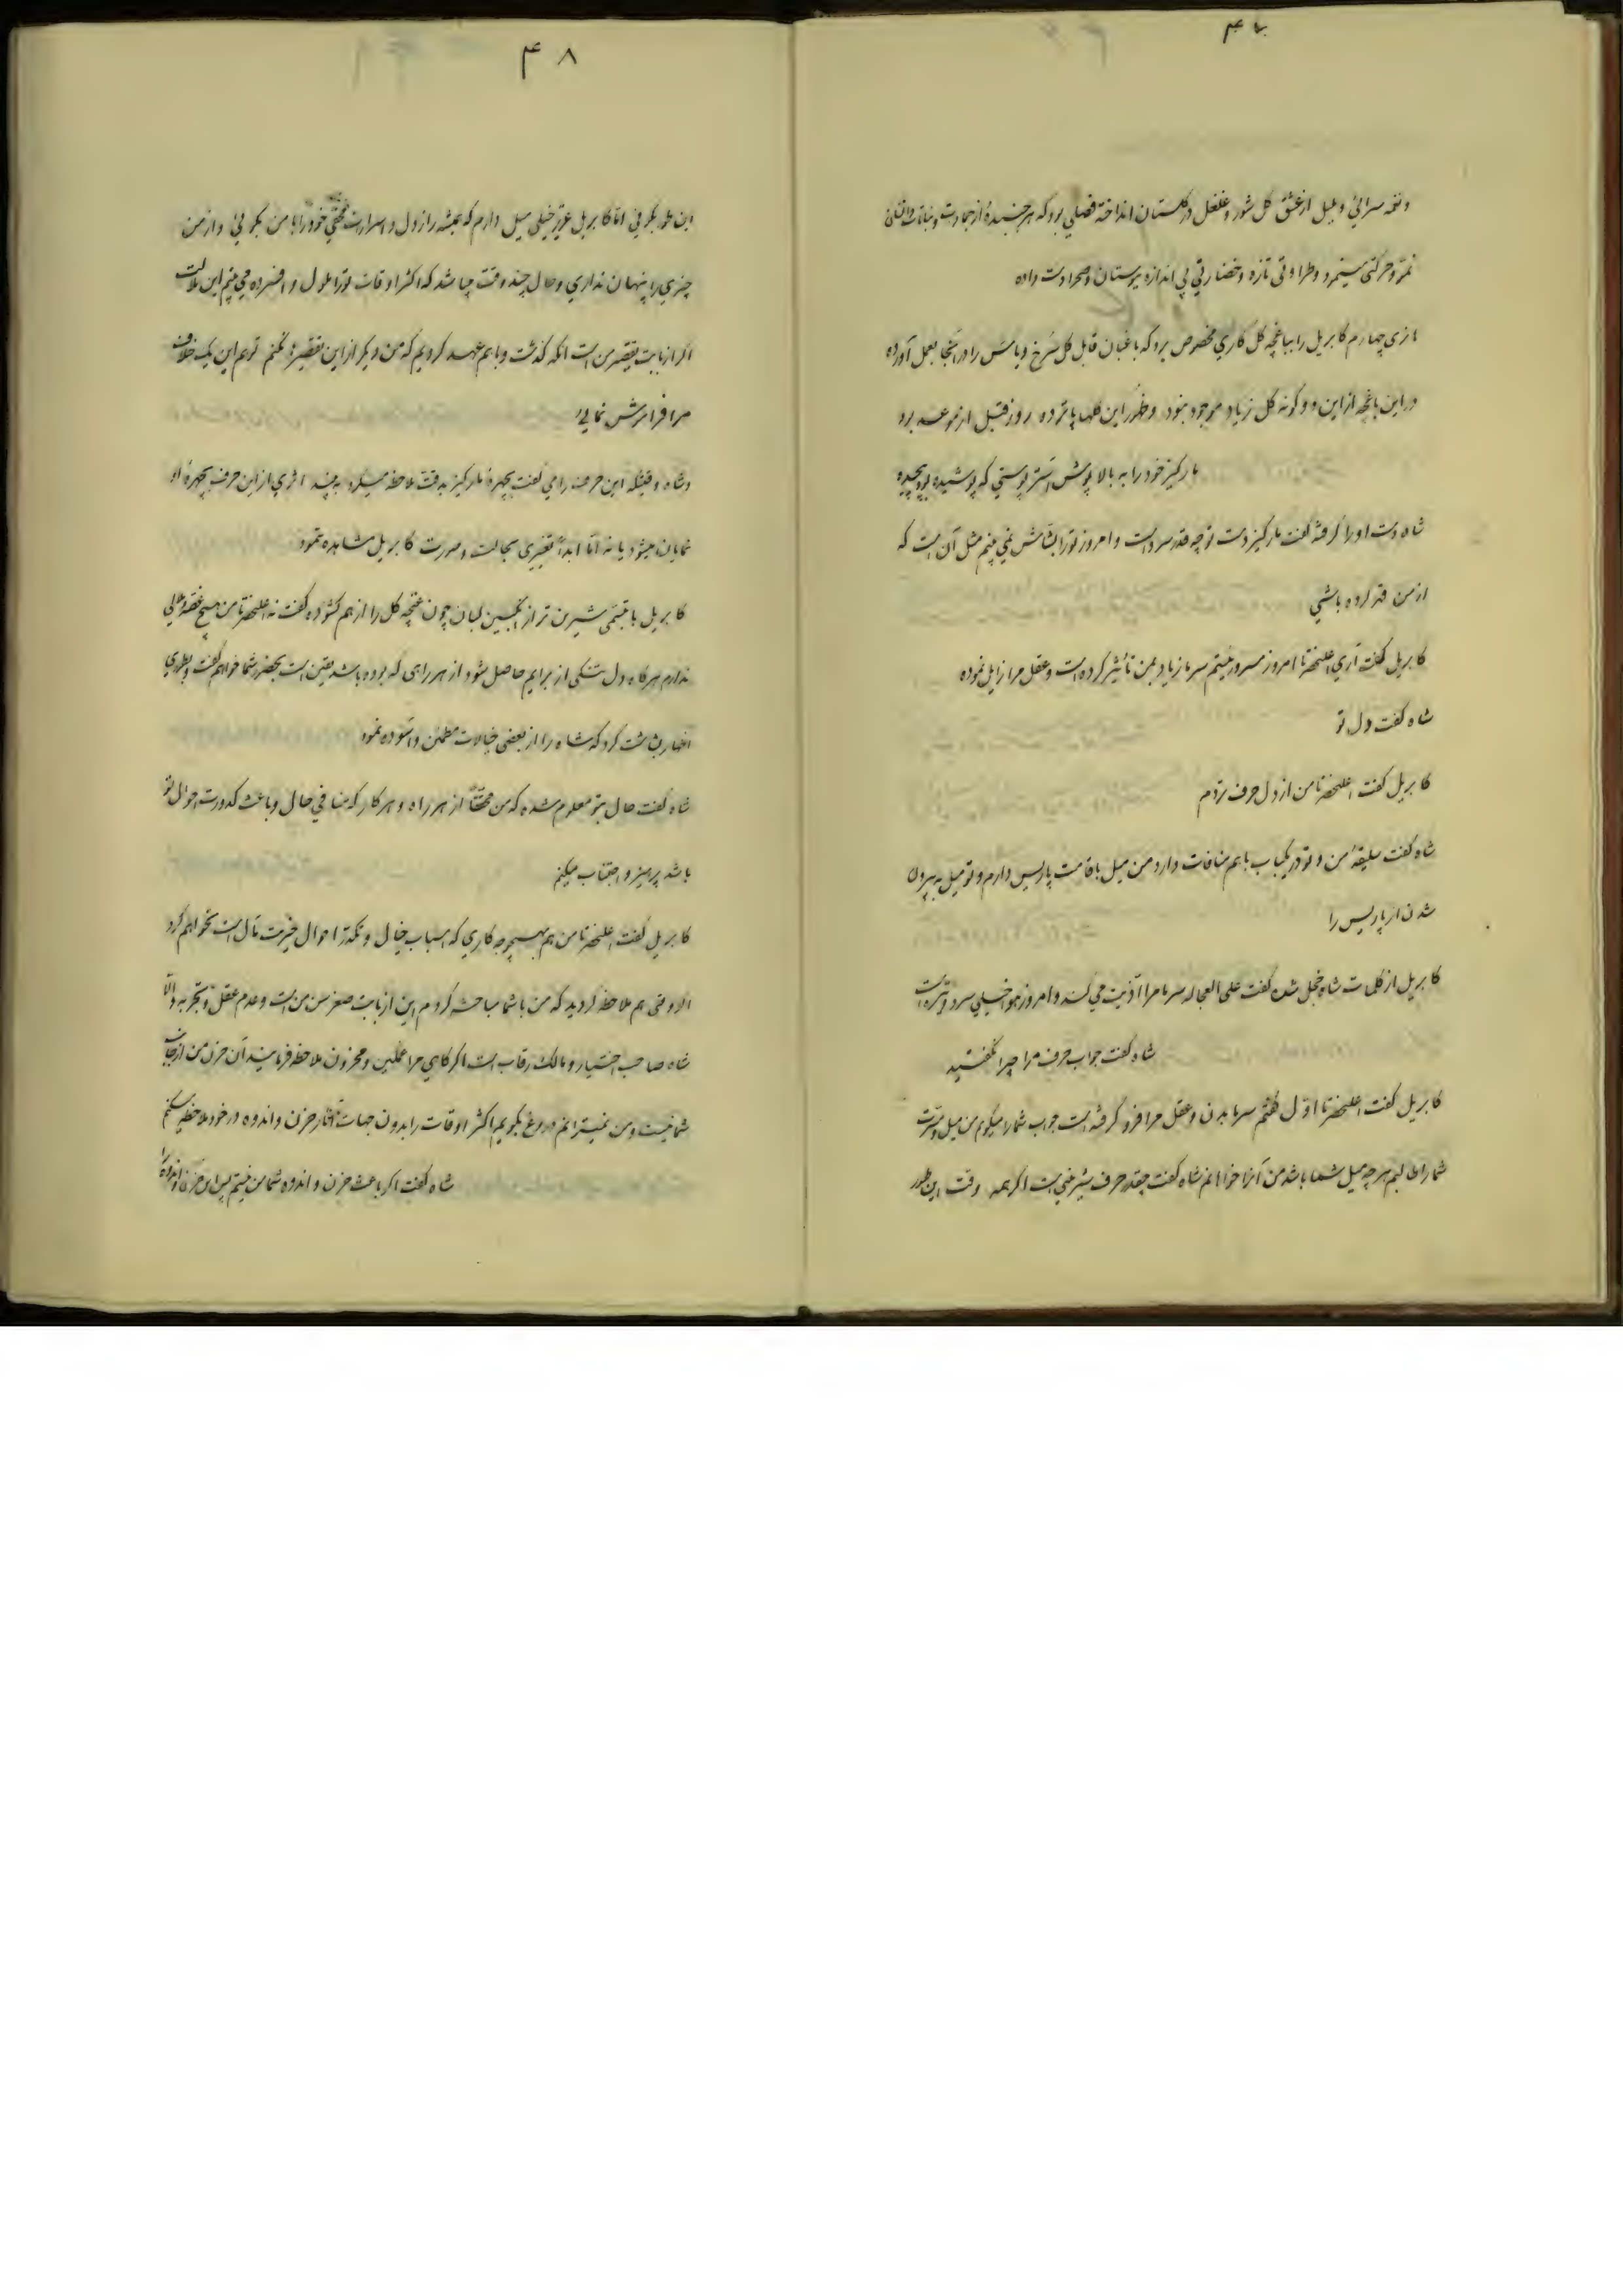 ۴۷
و نغمه سرائی و بلبل از عشق گل شور و غلغل در گلستان انداخته فصلی بود که هر جنبندهٔ از جمادات و نباتات
نمو و حرکتی مینمود و طراوتی تازه و خضارتی بی اندازه ببوستان و صحرا دست داده
انری چهارم کابریل را بباغچه گل کاری مخصوص برد که باغبان قابل گل سرخ و یاس را در آنجا بعمل آورده
در این باغچه از این دو گونه گل زیاد موجود بود و این گلها پانزده روز قبل از موعد بود
مارکیز خود را به بالا پوش آستر پوستی که پوشیده بود پیچیده
شاه دست او را گرفته گفت مارکیز دست تو چه قدر سرد است و امروز تو را بشاش نمی بینم مثل آن است که
از من قهر کرده باشی
کابریل گفت آری اعلیحضرتا امروز مسرور نیستم سرما زیاد بمن تأثیر کرده است و عقل مرا زایل نموده
شاه گفت دل تو
کابریل گفت اعلیحضرتا من از دل حرف نزدم
شاه گفت سلیقهٔ من و تو در یکباب با هم منافات دارد من میل باقامت پاریس دارم و تو میل به بیرون
شدن از پاریس را
کابریل از کلمات شاه خجل شده گفت علی العجاله سرما مرا اذیت می کند و امروز هوا خیلی سرد و تیره است
شاه گفت جواب حرف مرا چرا نگفتید
کابریل گفت اعلیحضرتا اول گفتم سرما بدن و عقل مرا فرو گرفته است جواب شما را میگویم من میل و مسرت
شما را طالبم هر چه میل شما باشد من آنرا خواهانم شاه گفت چقدر حرف شیرینی است اگر همه وقت این طور
۴۸
این طور بگوئی امّا کابریل عزیز خیلی میل دارم که همیشه راز دل و اسرارت مخفی خود را با من بگوئی و از من
چیزی را پنهان نداری و حال چند وقت میباشد که اکثر اوقات تو را ملول و افسرده می بینم این ملالت
اگر از بابت تقصیر من است آنکه گذشت و با هم عهد کردیم که من دیگر از این تقصیرها نکنم تو هم این یک خلاف
مرا فراموش نمائی
و شاه وقتیکه این حرفها را می گفت بچهرهٔ مارکیز بدقت ملاحظه میکرد به بیند اثری از این حرف بچهرهٔ او
نمایان میشود یا نه امّا ابداً تغییری بحالت و صورت کابریل مشاهده ننمود
کابریل با تبسّمی شیرین تر از انگبین لبان چون غنچه گل را از هم گشوده گفت نه اعلیحضرتا من هیچ غصه و ملالی
ندارم هرگاه دل تنگی از برایم حاصل شود از هر راهی که بوده باشد یقین است بحضور شما خواهم گفت و بطوری
اظهار بشاشت کرد که شاه را از بعضی خیالات مطمئن و آسوده نمود
شاه گفت حال بتو معلوم شده که من محققاً از هر راه و هر کار که منافی حال و باعث کدورت احوال تو
باشد پرهیز و اجتناب میکنم
کابریل گفت اعلیحضرتا من هم بهیچوجه کاری که اسباب خیال و تکدّر احوال خیریت مآل است نخواهم کرد
اگر وقتی هم ملاحظه کردید که من با شما مباحثه کردم این از بابت صغر سن من است و عدم عقل و تجربه و الّا
شاه صاحب اختیار و مالک رقاب است اگر گاهی مرا غمگین و محزون ملاحظه فرمایند آن حزن من از جانب
شما نیست و من نمیتوانم دروغ بگویم اکثر اوقات را بدون جهات آثار حزن و اندوه در خود ملاحظه میکنم
شاه گفت اگر باعث حزن و اندوه شما من نیستم پس این حزن و اندوه را